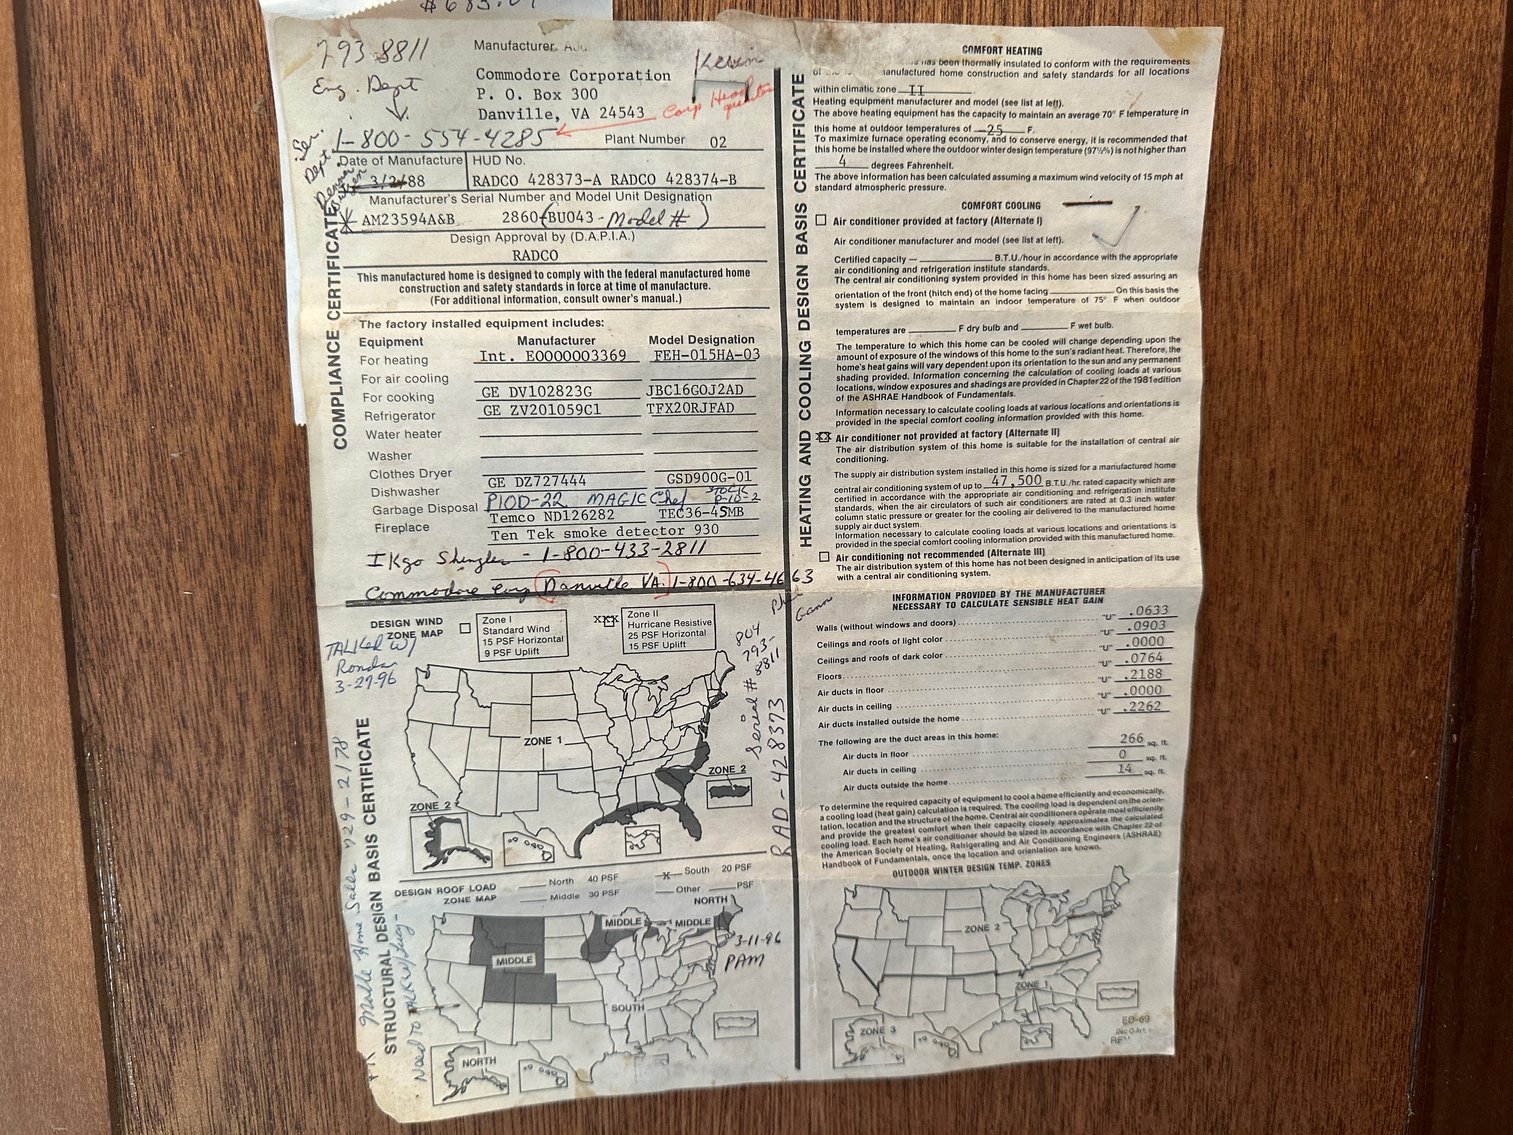 $685.01
293-8811
Eng. Dept
Manufacturer
Kevin
Commodore Corporation
P. O. Box 300
Danville, VA 24543
Corp Headquarters
1-800-554-4285
Ser. Dept
Plant Number 02
Date of Manufacture
3/2/88
HUD No.
RADCO 428373-A RADCO 428374-B
Manufacturer's Serial Number and Model Unit Designation
AM23594A&B 2860 (BU043 - Model #)
Design Approval by (D.A.P.I.A.)
RADCO
COMPLIANCE CERTIFICATE
This manufactured home is designed to comply with the federal manufactured home
construction and safety standards in force at time of manufacture.
(For additional information, consult owner's manual.)
The factory installed equipment includes:
Equipment Manufacturer Model Designation
For heating Int. E0000003369 FEH-015HA-03
For air cooling
For cooking GE DV102823G JBC16G0J2AD
Refrigerator GE ZV201059C1 TFX20RJFAD
Water heater
Washer
Clothes Dryer
Dishwasher GE DZ727444 GSD900G-01
Garbage Disposal P10D-22 MAGIC Chef STOCK P-10-2
Fireplace Temco ND126282 TEC36-45MB
Ten Tek smoke detector 930
I Kgo Shingles - 1-800-433-2811
Commodore Corp (Danville VA.) 1-800-634-4663
Phil Gann
DESIGN WIND
ZONE MAP
Zone I
Standard Wind
15 PSF Horizontal
9 PSF Uplift
XXX
Zone II
Hurricane Resistive
25 PSF Horizontal
15 PSF Uplift
TALKED W/
Ronda
3-27-96
804
793-
8811
Serial #
RAD-428373
ZONE 1
ZONE 2
ZONE 2
STRUCTURAL DESIGN BASIS CERTIFICATE
Mobile Home Sales 929-2178
Need to talk w/ Lucy -
DESIGN ROOF LOAD
ZONE MAP
North 40 PSF
Middle 30 PSF
X South 20 PSF
Other PSF
NORTH
MIDDLE
MIDDLE
MIDDLE
SOUTH
NORTH
3-11-96
PAM
HEATING AND COOLING DESIGN BASIS CERTIFICATE
COMFORT HEATING
has been thermally insulated to conform with the requirements
of the manufactured home construction and safety standards for all locations
within climatic zone II.
Heating equipment manufacturer and model (see list at left).
The above heating equipment has the capacity to maintain an average 70° F temperature in
this home at outdoor temperatures of -25 F.
To maximize furnace operating economy, and to conserve energy, it is recommended that
this home be installed where the outdoor winter design temperature (97½%) is not higher than
4 degrees Fahrenheit.
The above information has been calculated assuming a maximum wind velocity of 15 mph at
standard atmospheric pressure.
COMFORT COOLING
Air conditioner provided at factory (Alternate I)
Air conditioner manufacturer and model (see list at left).
Certified capacity — B.T.U./hour in accordance with the appropriate
air conditioning and refrigeration institute standards.
The central air conditioning system provided in this home has been sized assuring an
orientation of the front (hitch end) of the home facing On this basis the
system is designed to maintain an indoor temperature of 75° F when outdoor
temperatures are F dry bulb and F wet bulb.
The temperature to which this home can be cooled will change depending upon the
amount of exposure of the windows of this home to the sun's radiant heat. Therefore, the
home's heat gains will vary dependent upon its orientation to the sun and any permanent
shading provided. Information concerning the calculation of cooling loads at various
locations, window exposures and shadings are provided in Chapter 22 of the 1981 edition
of the ASHRAE Handbook of Fundamentals.
Information necessary to calculate cooling loads at various locations and orientations is
provided in the special comfort cooling information provided with this home.
XX Air conditioner not provided at factory (Alternate II)
The air distribution system of this home is suitable for the installation of central air
conditioning.
The supply air distribution system installed in this home is sized for a manufactured home
central air conditioning system of up to 47,500 B.T.U./hr. rated capacity which are
certified in accordance with the appropriate air conditioning and refrigeration institute
standards, when the air circulators of such air conditioners are rated at 0.3 inch water
column static pressure or greater for the cooling air delivered to the manufactured home
supply air duct system.
Information necessary to calculate cooling loads at various locations and orientations is
provided in the special comfort cooling information provided with this manufactured home.
Air conditioning not recommended (Alternate III)
The air distribution system of this home has not been designed in anticipation of its use
with a central air conditioning system.
INFORMATION PROVIDED BY THE MANUFACTURER
NECESSARY TO CALCULATE SENSIBLE HEAT GAIN
Walls (without windows and doors) "U" .0633
Ceilings and roofs of light color "U" .0903
Ceilings and roofs of dark color "U" .0000
Floors "U" .0764
Air ducts in floor "U" .2188
Air ducts in ceiling "U" .0000
Air ducts installed outside the home "U" .2262
The following are the duct areas in this home:
Air ducts in floor 266 sq. ft.
Air ducts in ceiling 0 sq. ft.
Air ducts outside the home 14 sq. ft.
To determine the required capacity of equipment to cool a home efficiently and economically,
a cooling load (heat gain) calculation is required. The cooling load is dependent on the orien-
tation, location and the structure of the home. Central air conditioners operate most efficiently
and provide the greatest comfort when their capacity closely approximates the calculated
cooling load. Each home's air conditioner should be sized in accordance with Chapter 22 of
the American Society of Heating, Refrigerating and Air Conditioning Engineers (ASHRAE)
Handbook of Fundamentals, once the location and orientation are known.
OUTDOOR WINTER DESIGN TEMP. ZONES
ZONE 2
ZONE 1
ZONE 3
ED-69